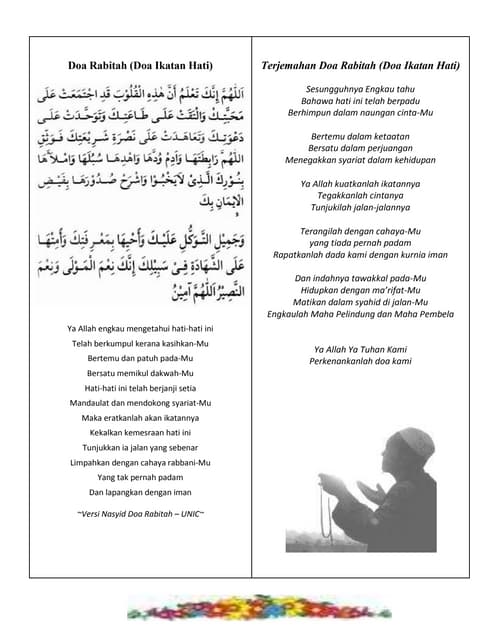 Doa Rabitah (Doa Ikatan Hati)
اَللّٰهُمَّ إِنَّكَ تَعْلَمُ أَنَّ هٰذِهِ الْقُلُوْبَ قَدِ اجْتَمَعَتْ عَلَى
مَحَبَّتِكَ وَالْتَقَتْ عَلَى طَاعَتِكَ وَتَوَحَّدَتْ عَلَى
دَعْوَتِكَ وَتَعَاهَدَتْ عَلَى نُصْرَةِ شَرِيْعَتِكَ فَوَثِّقِ
اللّٰهُمَّ رَابِطَتَهَا وَأَدِمْ وُدَّهَا وَاهْدِهَا سُبُلَهَا وَامْلَأْهَا
بِنُوْرِكَ الَّذِيْ لَايَخْبُوْا وَاشْرَحْ صُدُوْرَهَا بِفَيْضِ
الْإِيْمَانِ بِكَ
وَجَمِيْلِ التَّوَكُّلِ عَلَيْكَ وَأَحْيِهَا بِمَعْرِفَتِكَ وَأَمِتْهَا
عَلَى الشَّهَادَةِ فِيْ سَبِيْلِكَ إِنَّكَ نِعْمَ الْمَوْلَى وَنِعْمَ
النَّصِيْرُ اَللّٰهُمَّ آمِيْنُ
Ya Allah engkau mengetahui hati-hati ini
Telah berkumpul kerana kasihkan-Mu
Bertemu dan patuh pada-Mu
Bersatu memikul dakwah-Mu
Hati-hati ini telah berjanji setia
Mandaulat dan mendokong syariat-Mu
Maka eratkanlah akan ikatannya
Kekalkan kemesraan hati ini
Tunjukkan ia jalan yang sebenar
Limpahkan dengan cahaya rabbani-Mu
Yang tak pernah padam
Dan lapangkan dengan iman
~Versi Nasyid Doa Rabitah – UNIC~
Terjemahan Doa Rabitah (Doa Ikatan Hati)
Sesungguhnya Engkau tahu
Bahawa hati ini telah berpadu
Berhimpun dalam naungan cinta-Mu
Bertemu dalam ketaatan
Bersatu dalam perjuangan
Menegakkan syariat dalam kehidupan
Ya Allah kuatkanlah ikatannya
Tegakkanlah cintanya
Tunjukilah jalan-jalannya
Terangilah dengan cahaya-Mu
yang tiada pernah padam
Rapatkanlah dada kami dengan kurnia iman
Dan indahnya tawakkal pada-Mu
Hidupkan dengan ma’rifat-Mu
Matikan dalam syahid di jalan-Mu
Engkaulah Maha Pelindung dan Maha Pembela
Ya Allah Ya Tuhan Kami
Perkenankanlah doa kami